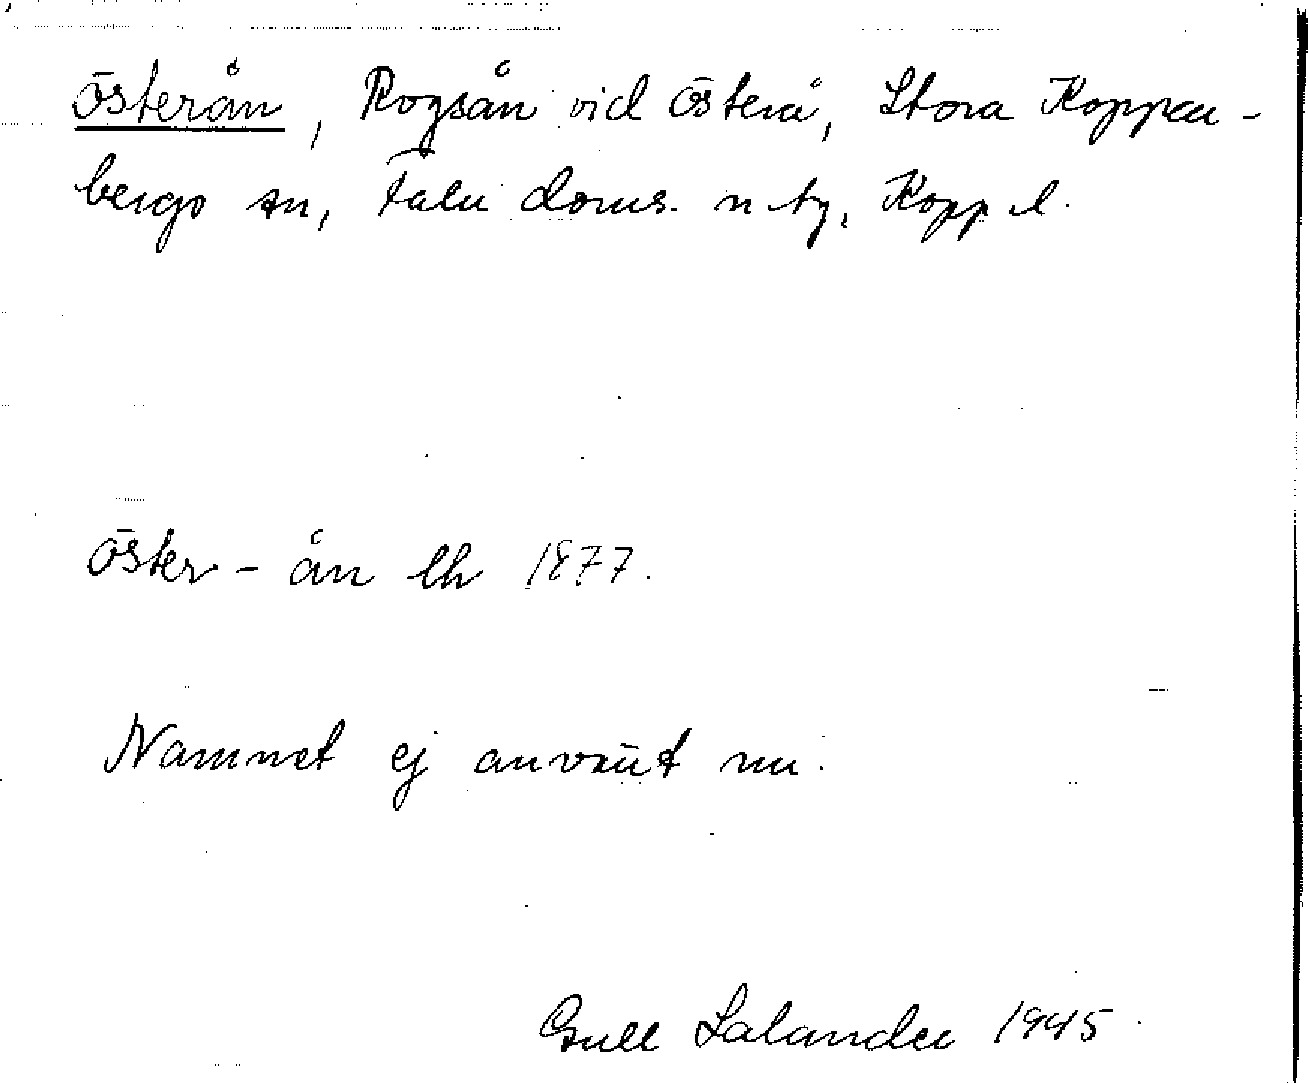 Österån, Rogsån vid Österå, Stora Koppar-
bergs sn, Falu doms. n tg, Kopp l.
Öster - ån lh 1877.
Namnet ej använt nu.
Gull Salander 1945.